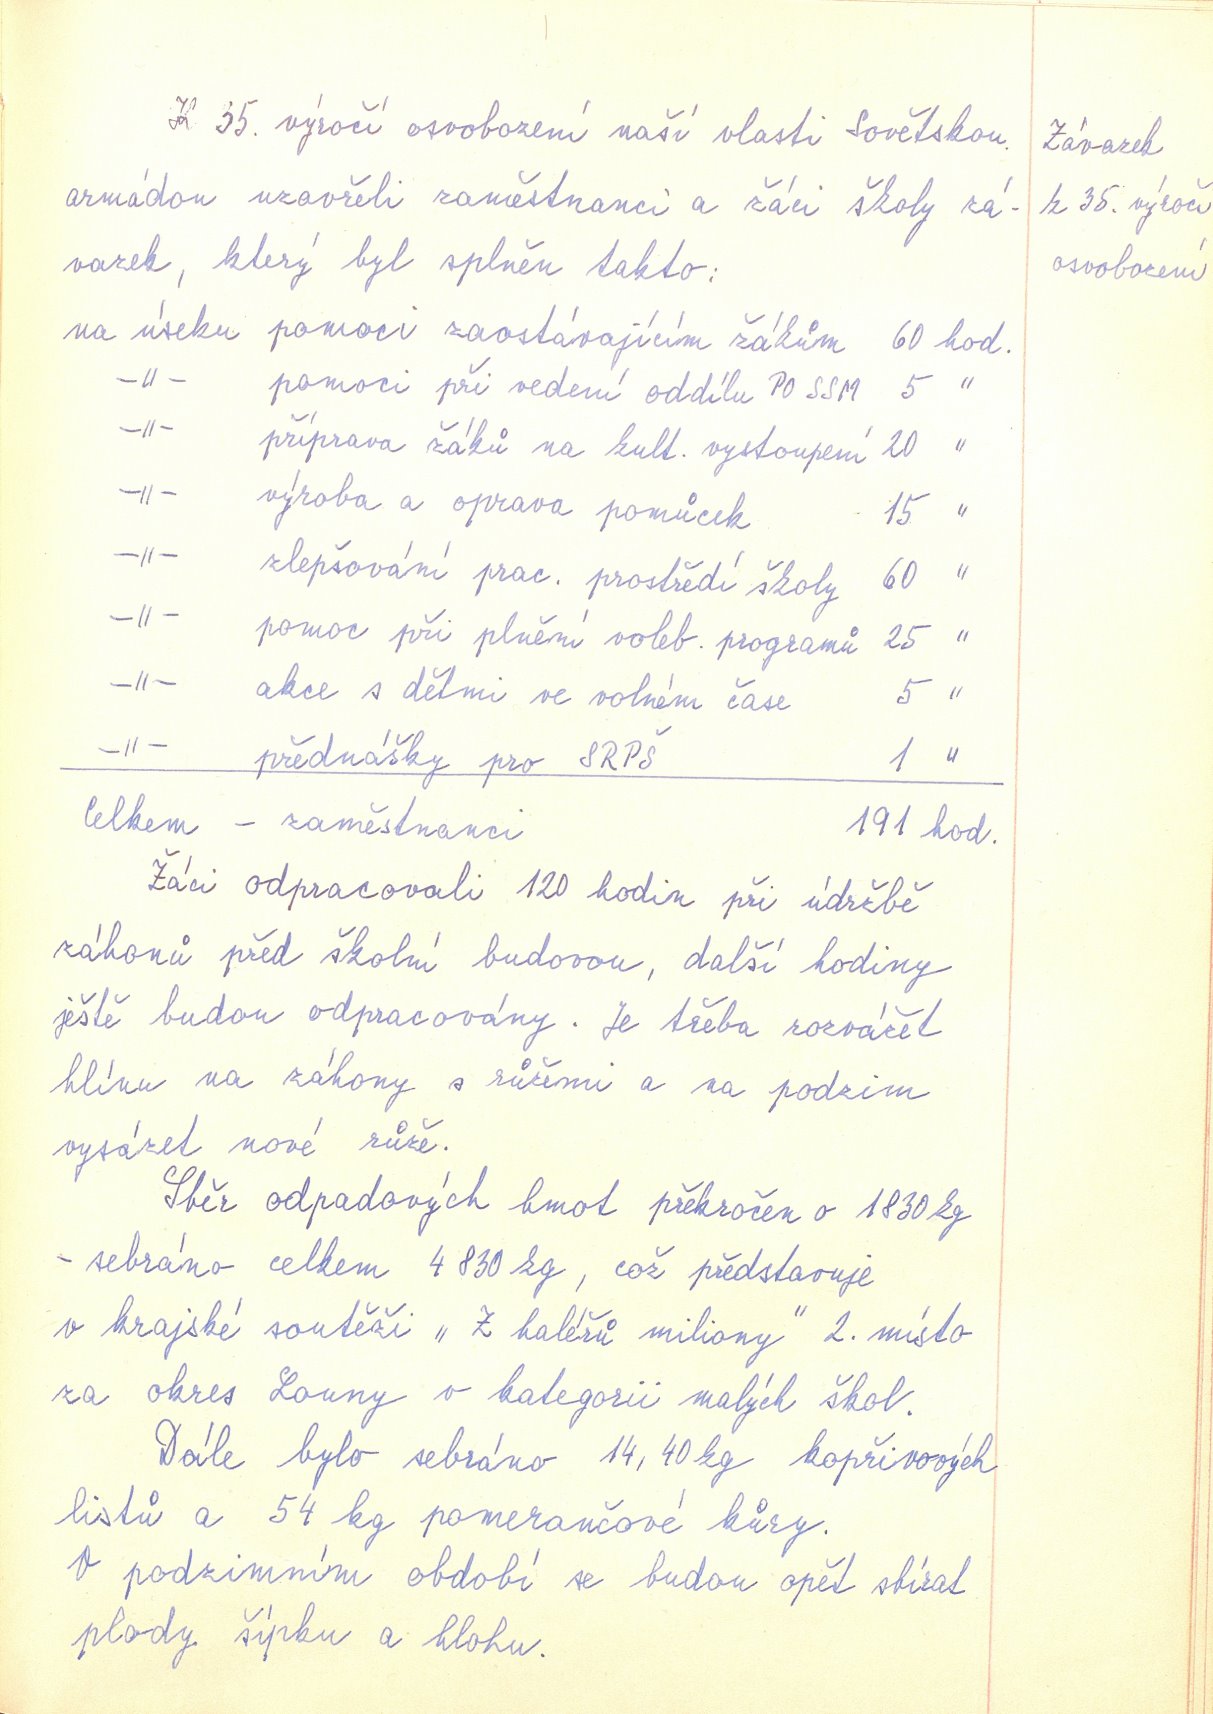 K 35. výročí osvobození naší vlasti Sovětskou
armádou uzavřeli zaměstnanci a žáci školy zá-
vazek, který byl splněn takto:
na úseku pomoci zaostávajícím žákům 60 hod.
-"- pomoci při vedení oddílu PO SSM 5 "
-"- příprava žáků na kult. vystoupení 20 "
-"- výroba a oprava pomůcek 15 "
-"- zlepšování prac. prostředí školy 60 "
-"- pomoc při plnění voleb. programů 25 "
-"- akce s dětmi ve volném čase 5 "
-"- přednášky pro SRPŠ 1 "
Celkem - zaměstnanci 191 hod.
Žáci odpracovali 120 hodin při údržbě
záhonů před školní budovou, další hodiny
ještě budou odpracovány. Je třeba rozvážet
hlínu na záhony s růžemi a na podzim
vysázet nové růže.
Sběr odpadových hmot překročen o 1830 kg
- sebráno celkem 4 830 kg, což představuje
v krajské soutěži „Z haléřů miliony" 2. místo
za okres Louny v kategorii malých škol.
Dále bylo sebráno 14,40 kg kopřivových
listů a 54 kg pomerančové kůry.
V podzimním období se budou opět sbírat
plody šípku a hlohu.
Závazek
k 35. výročí
osvobození